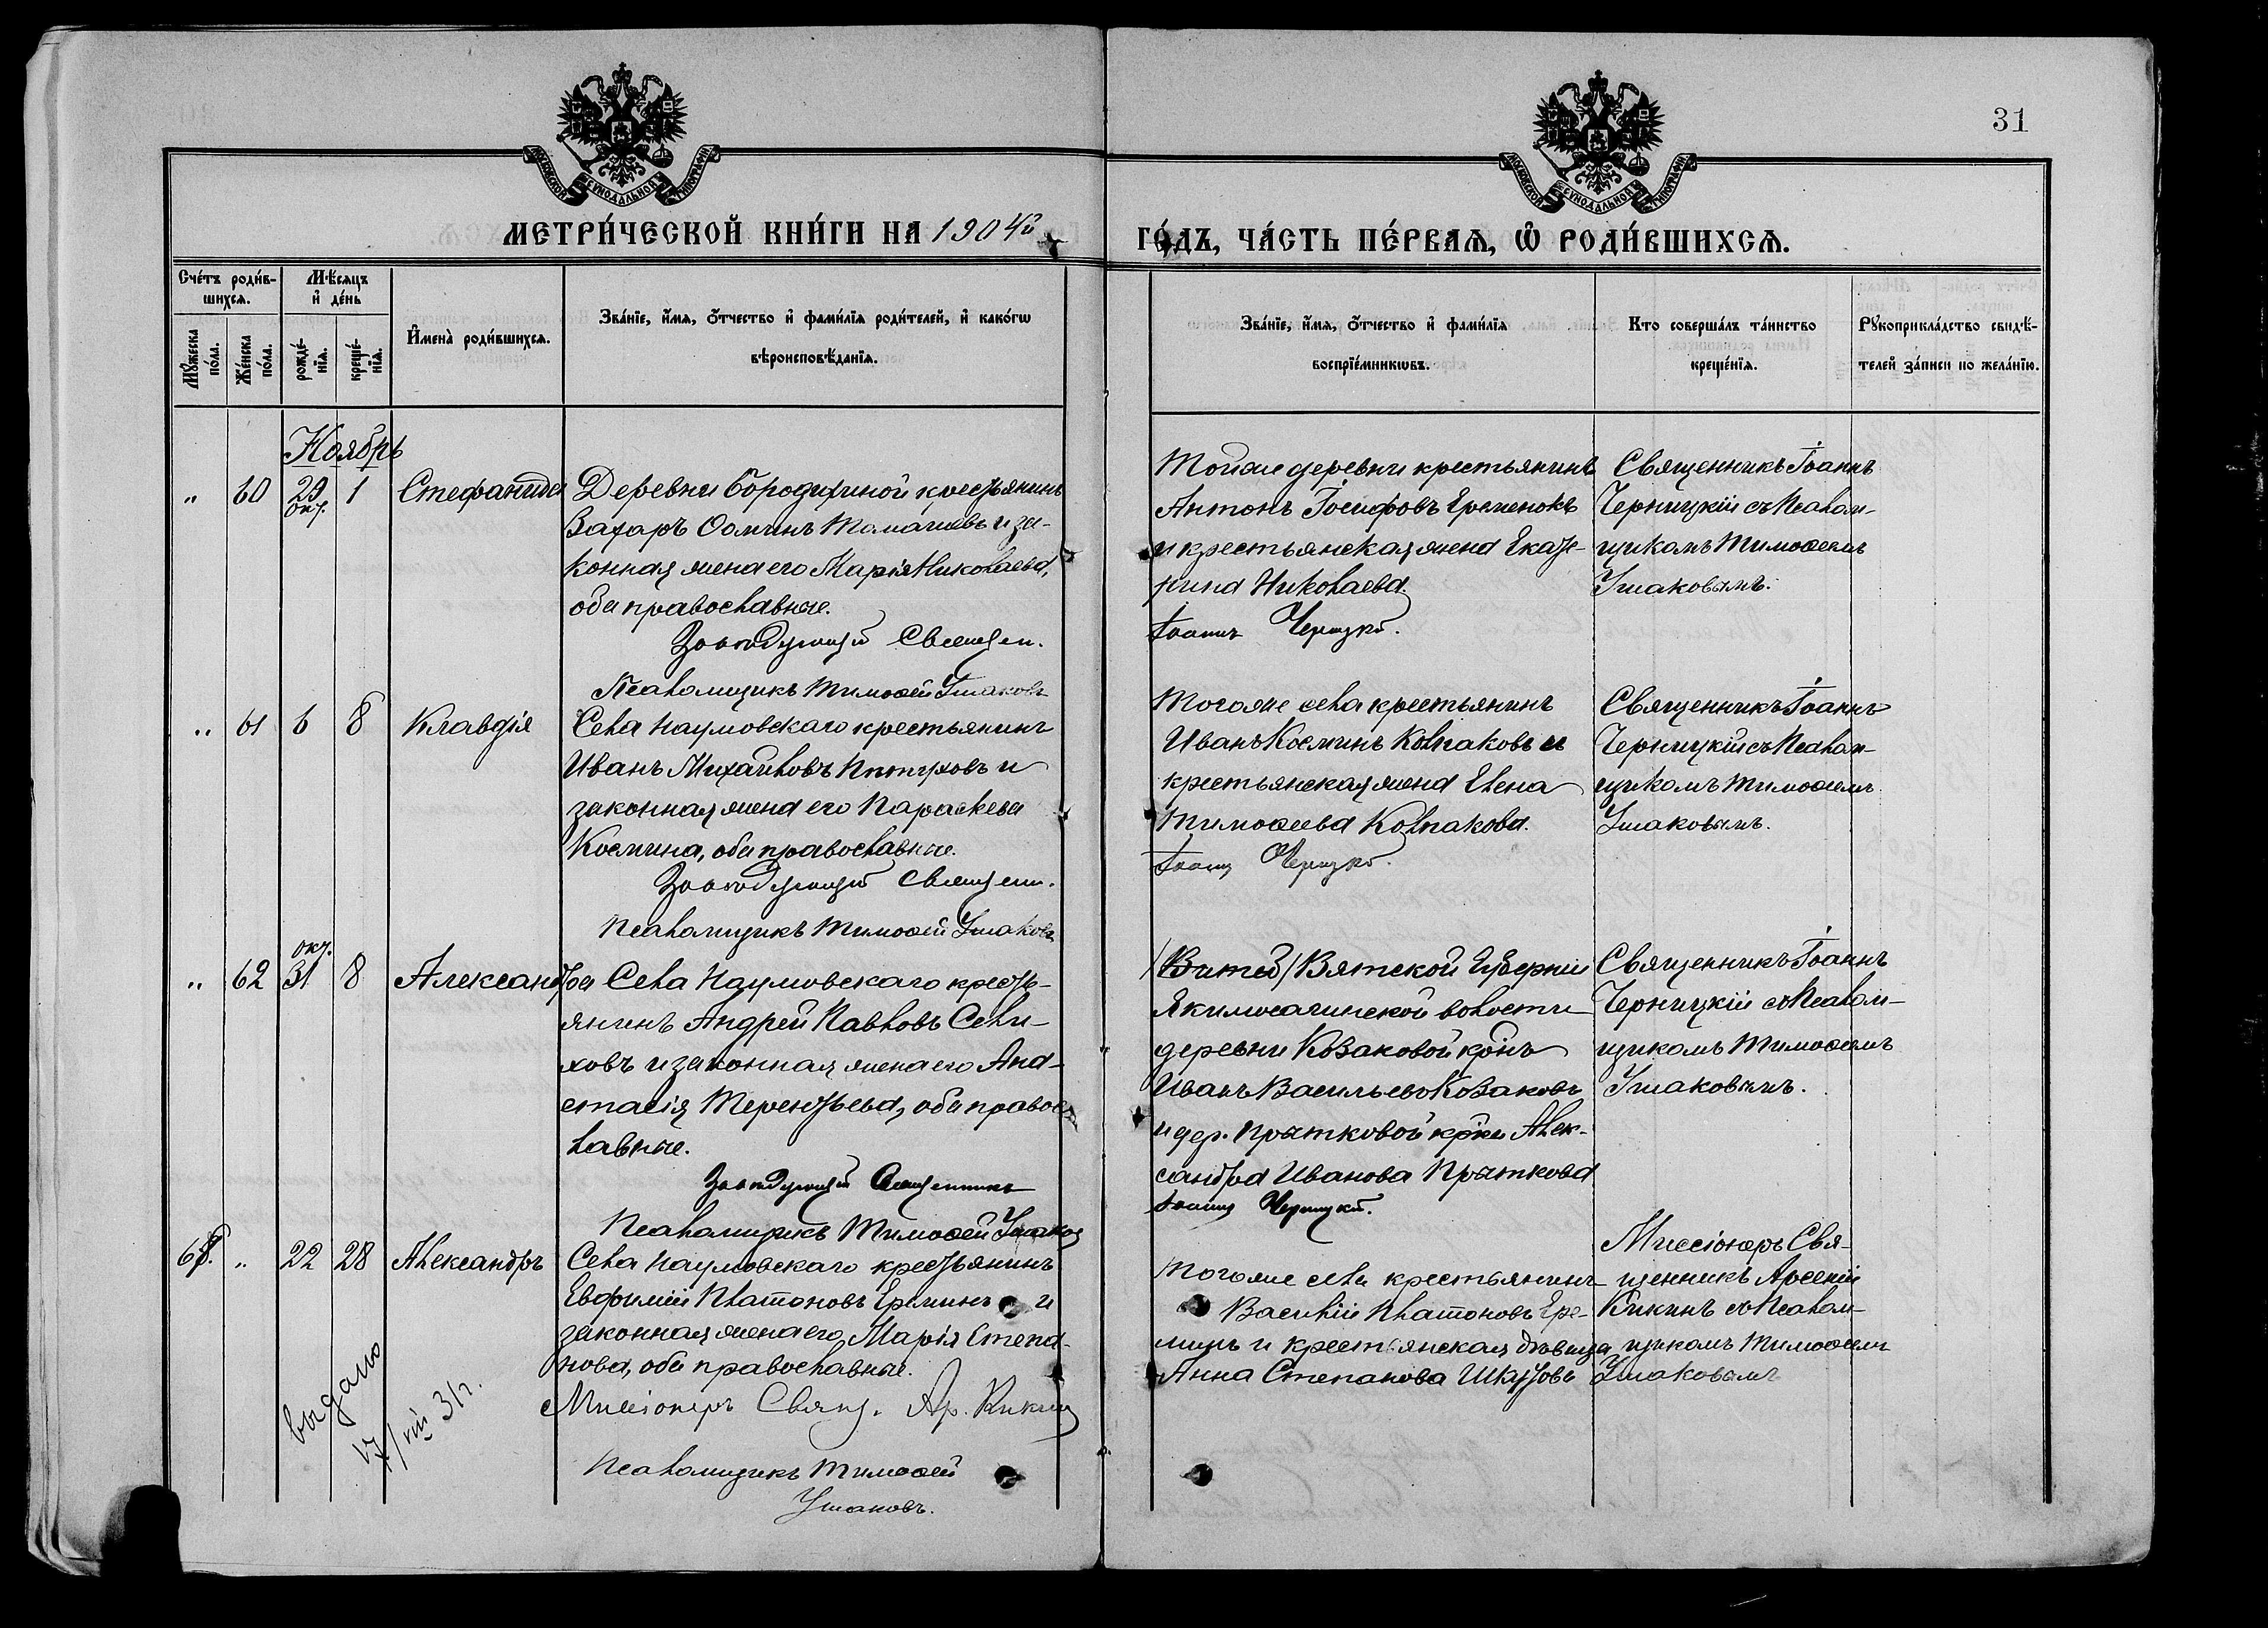 31
МОСКОВСКОЙ СУНОДАЛЬНОЙ ТИПОГРАФІИ
МОСКОВСКОЙ СУНОДАЛЬНОЙ ТИПОГРАФІИ
МЕТРИ́ЧЕСКОЙ КНИ́ГИ НА 1904й
ГО́ДЪ, ЧА́СТЬ ПЕ́РВАѦ, Ѽ РОДИ́ВШИХСѦ.
Сче́тъ роди́в-
шихсѧ.
Мꙋ́жеска по́ла.
Же́нска по́ла.
Мѣ́сѧцъ
и҆ де́нь
рожде́-
нїѧ.
креще́-
нїѧ.
И҆мена̀ роди́вшихсѧ.
Зва́нїе, и҆́мѧ, ѻ҆́тчество и҆ фами́лїѧ роди́телей, и҆ како́гѡ
вѣроисповѣ́данїѧ.
Зва́нїе, и҆́мѧ, ѻ҆́тчество и҆ фами́лїѧ
воспрїе́мникѡвъ.
Кто̀ соверша́лъ та́инство
креще́нїѧ.
Рꙋкоприкла́дство свидѣ́-
телей за́писи по жела́нїю.
Ноябрь
" 60 29 окт. 1 Стефанида
Деревни Бородихиной крестьянинъ
Захаръ Ѳоминъ Томашевъ и за-
конная жена его Марія Николаева,
оба православные.
Завѣдующій Священ.
Псаломщикъ Тимоѳей Ушаковъ
Тойже деревни крестьянинъ
Антонъ Іосифовъ Еременокъ
и крестьянская жена Екате-
рина Николаева.
Іоаннъ Черницкій.
Священникъ Іоаннъ
Черницкій съ Псалом-
щикомъ Тимоѳеемъ
Ушаковымъ.
" 61 6 8 Клавдія
Села Наумовскаго крестьянинъ
Иванъ Михайловъ Пѣтуховъ и
законная жена его Параскева
Космина, оба православные.
Завѣдующій Священ.
Псаломщикъ Тимоѳей Ушаковъ
Тогоже села крестьянинъ
Иванъ Косминъ Колпаковъ и
крестьянская жена Елена
Тимоѳеева Колпакова.
Іоаннъ Черницкій.
Священникъ Іоаннъ
Черницкій съ Псалом-
щикомъ Тимоѳеемъ
Ушаковымъ.
" 62 окт. 31 8 Александра
Села Наумовскаго кресть-
янинъ Андрей Павловъ Сели-
ховъ и законная жена его Ана-
стасія Терентьева, оба правос-
лавные.
Завѣдующій Священникъ
Псаломщикъ Тимоѳей Ушаковъ
Вятской Губерніи
волости
деревни Козаковой кр̃нъ
Иванъ Васильевъ Козаковъ
и дер. Прытковой кр̃ка Алек-
сандра Иванова Прыткова
Іоаннъ Черницкій.
Священникъ Іоаннъ
Черницкій съ Псалом-
щикомъ Тимоѳеемъ
Ушаковымъ.
68. " 22 28 Александръ
Села Наумовскаго крестьянинъ
Евфимій Платоновъ Ереминъ и
законная жена его Марія Степа-
нова, оба православные.
Миссіонеръ Свящ. Ар. Кикинъ
Псаломщикъ Тимоѳей
Ушаковъ.
Тогоже села крестьянинъ
Василій Платоновъ Ере-
минъ и крестьянская дѣвица
Анна Степанова
Миссіонеръ Свя-
щенникъ Арсеній
Кикинъ съ Псалом-
щикомъ Тимоѳеемъ
Ушаковымъ
выдано
17/VIII 31г.